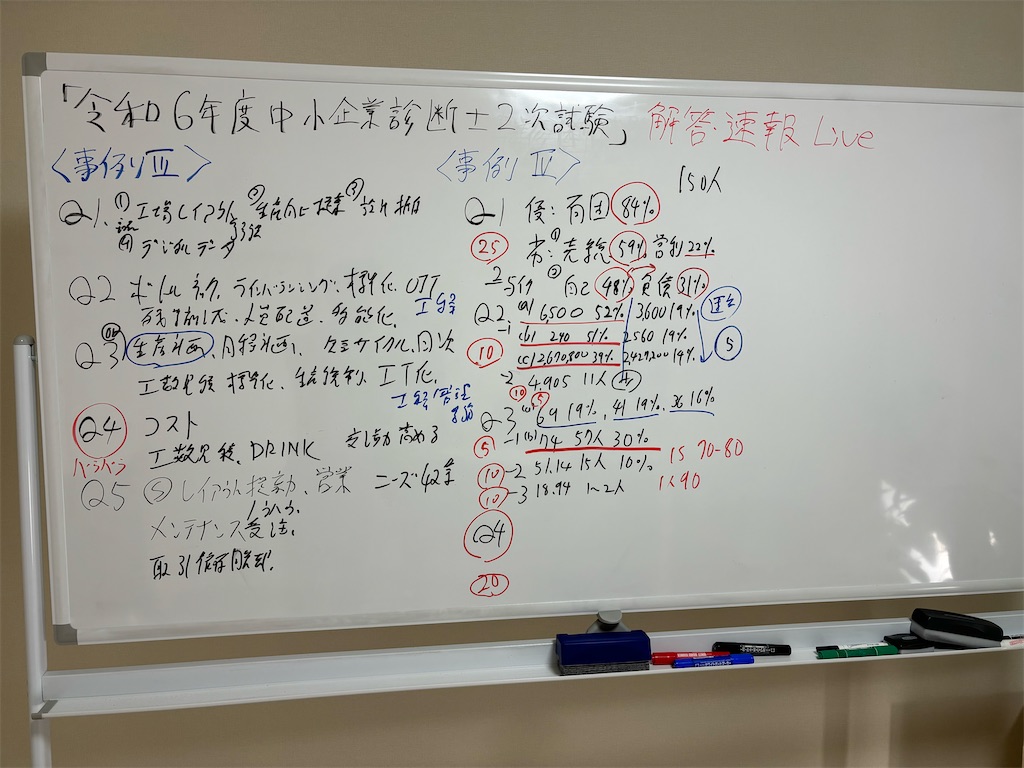 「令和6年度中小企業診断士2次試験」 解答速報 Live
〈事例Ⅲ〉
Q1. ① 工場レイアウト ② 生産向上 提案 ③
④ デジタルデータ
Q2 ボトルネック, ラインバランシング, 標準化, OJT
人員配置, 多能化. 工程
Q3 生産計画, 月程計画, 短サイクル, 日次
工数見積 標準化, 生産統制, IT化,
工程管理
Q4 コスト
バラバラ
工数見積, DRINK 交渉力高める
Q5 ⑤ レイアウト変更, 営業 ニーズ収集
ノウハウ
メンテナンス受注,
取引依存脱却.
〈事例Ⅳ〉
150人
Q1 優: 有固 84%
25 劣: ① 売総 59% 営利 22%
② 自己 48% 負債 31%
Q2 (a) 6,500 52% 3,600 19%
-1 (b) 240 51% 2560 19% ⑤
10 (c) 2,670,800 39% 2429200 19%
-2 4.905 11人
10 5
Q3 (a) 64 19%, 41 19%, 36 16%
5 -1 (b) 174 57人 30%
10 -2 51.14 15人 10% 15 70-80
10 -3 18.94 1~2人 1<90
Q4
20